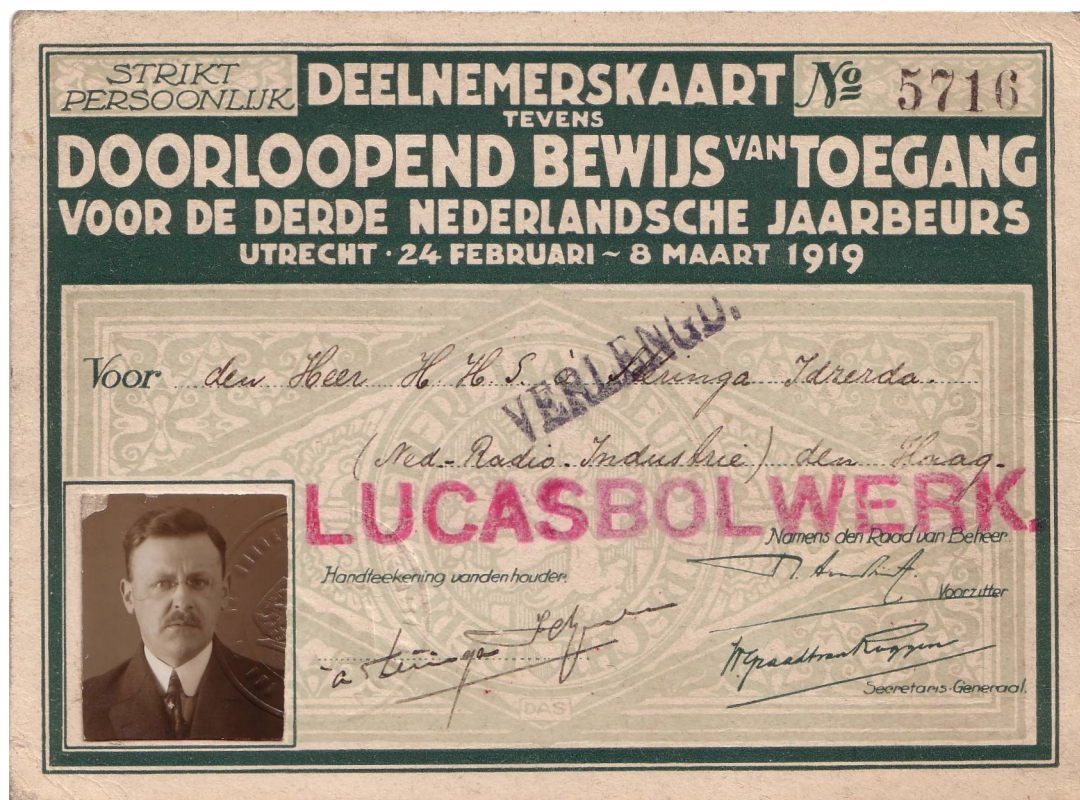 STRIKT
PERSOONLIJK
DEELNEMERSKAART
No 5716
TEVENS
DOORLOOPEND BEWIJS VAN TOEGANG
VOOR DE DERDE NEDERLANDSCHE JAARBEURS
UTRECHT · 24 FEBRUARI ~ 8 MAART 1919
VERLENGD.
Voor den Heer H H S. à Steringa Idzerda.
(Ned-Radio-Industrie) den Haag.
LUCASBOLWERK.
Namens den Raad van Beheer
Handteekening van den houder.
Voorzitter
à Steringa Idzerda
Secretaris-Generaal.
DAS